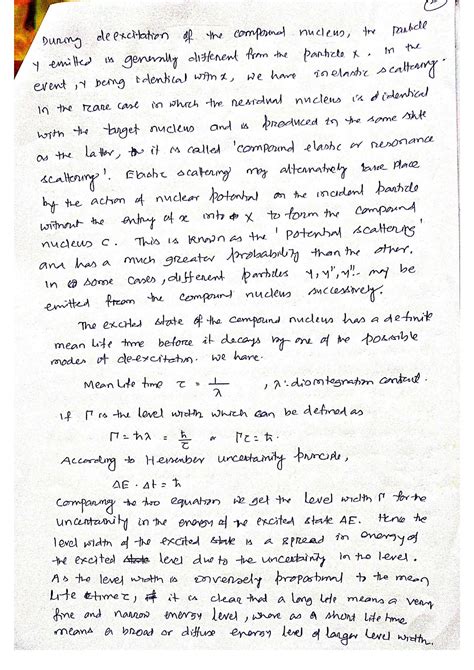 During deexcitation of the compound nucleus, the particle
y emitted is generally different from the particle x. In the
event, y being identical with x, we have inelastic scattering.
In the rare case in which the residual nucleus is identical
with the target nucleus and is produced in the same state
as the latter, it is called 'compound elastic or resonance
scattering'. Elastic scattering may alternately take place
by the action of nuclear potential on the incident particle
without the entry of x into X to form the compound
nucleus C. This is known as the 'potential scattering'
and has a much greater probability than the other.
In some cases, different particles y, y', y''.. may be
emitted from the compound nucleus successively.
The excited state of the compound nucleus has a definite
mean life time before it decays by one of the possible
modes of de-excitation. We have.
Mean life time τ = 1/λ , λ: disintegration constant.
If Γ is the level width which can be defined as
Γ = ħλ = ħ/τ or Γτ = ħ.
According to Heisenber uncertainity principle,
ΔE · Δt = ħ
Comparing the two equation we get the level width Γ for the
uncertainity in the energy of the excited state ΔE. Hence the
level width of the excited state is a spread in energy of
the excited level due to the uncertainity in the level.
As the level width is inversely propostional to the mean
life time τ, it is clear that a long life means a very
fine and narrow energy level, where as a short life time
means a broad or diffuse energy level of larger level width.